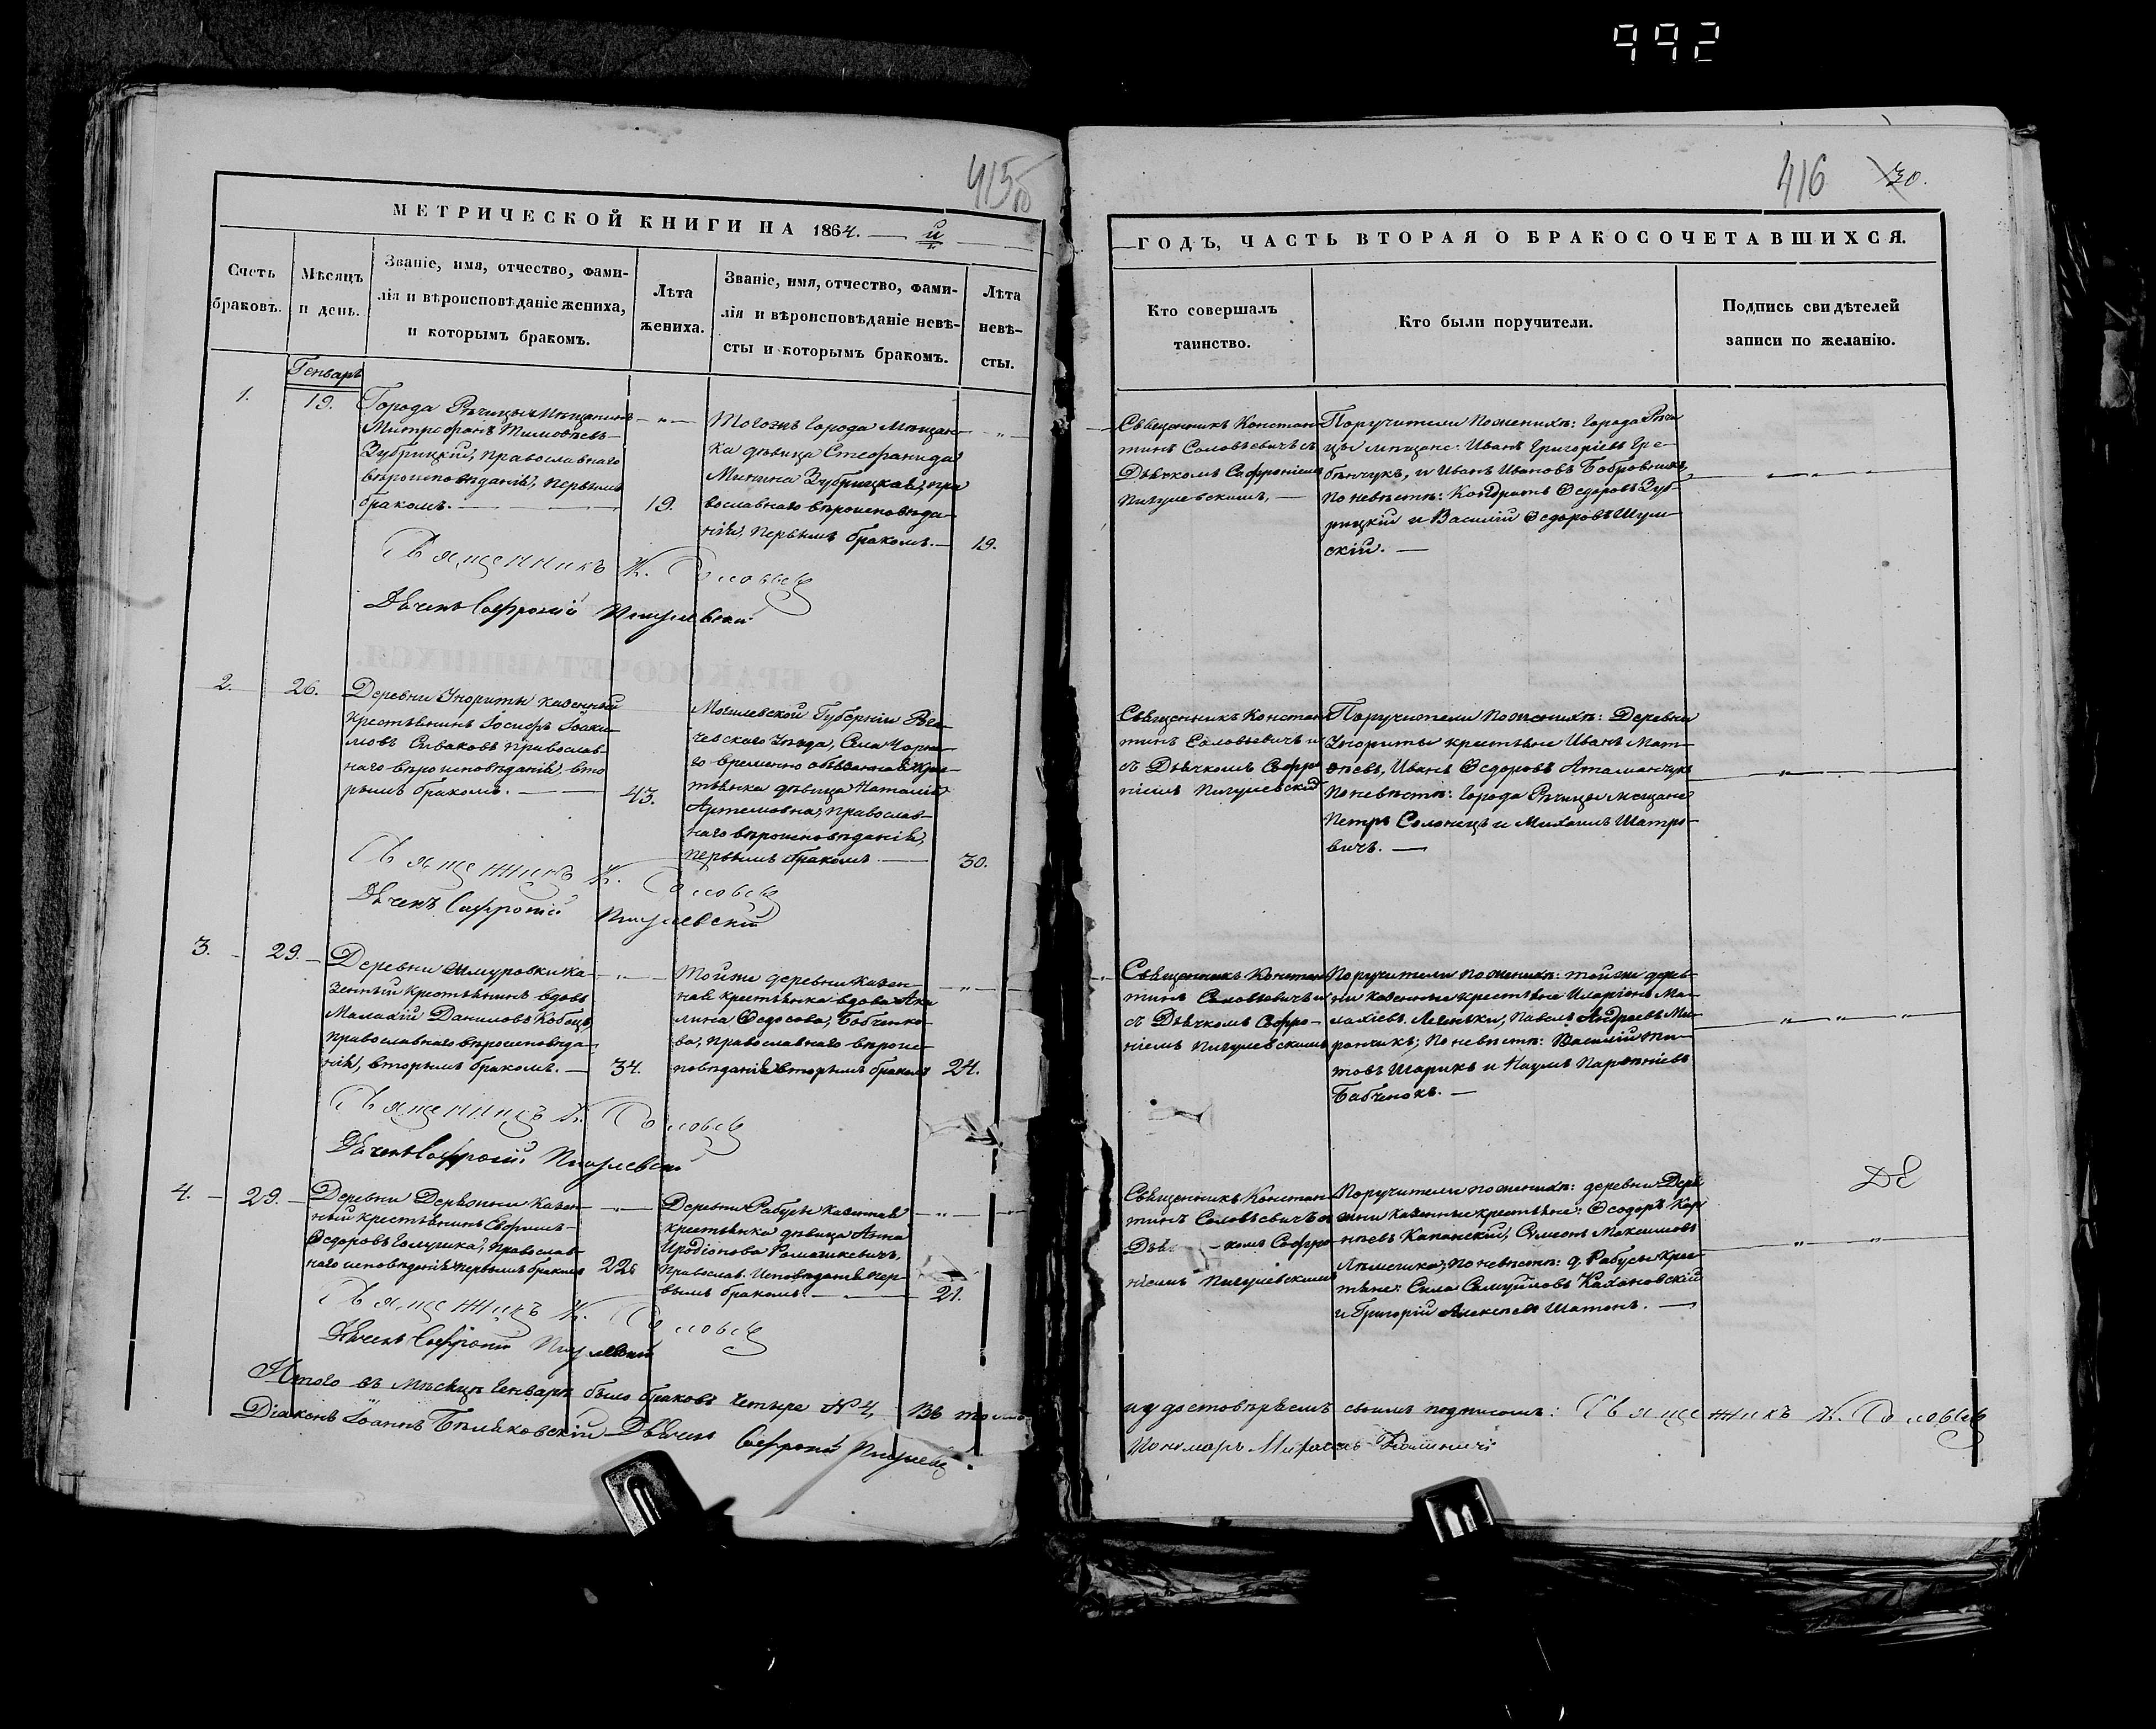 992
415об
МЕТРИЧЕСКОЙ КНИГИ НА 1864. — й
Счетъ
браковъ.
Мѣсяцъ
и день.
Званіе, имя, отчество, фами-
лія и вѣроисповѣданіе жениха,
и которымъ бракомъ.
Лѣта
жениха.
Званіе, имя, отчество, фами-
лія и вѣроисповѣданіе невѣ-
сты и которымъ бракомъ.
Лѣта
невѣ-
сты.
Генварь
1.
19.
Города Рѣчицы мѣщанинъ
Митрофанъ Тимоѳѣевъ
Зубрицкій, православнаго
вѣроисповѣданія, первымъ
бракомъ. —
19.
Тогожъ города мѣщан-
ка дѣвица Стефанида
Минина Зубрицкая, пра
вославнаго вѣроисповѣда-
нія, первымъ бракомъ. —
19.
Священникъ К. Соловьев
Дьячекъ Софроній Пигулевскій
2.
26.
Деревни Унориты казенный
крестьянинъ Іосифъ Іоаки-
мовъ Сиваковъ православ-
наго вѣроисповѣданія, вто
рымъ бракомъ. —
43.
Могилевской Губерніи Рга-
чевскаго уѣзда, Села Чорна-
го временно обязанная кре-
стьянка дѣвица Наталія
Артемовна, православ-
наго вѣроисповѣданія,
первымъ бракомъ —
30.
Священникъ К. Соловьев
Дьячекъ Софроній Пигулевскій
3.
29.
Деревни Шмуровки ка-
зенный крестьянинъ вдовъ
Малахій Даниловъ Кобецъ,
православнаго вѣроисповѣда-
нія, вторымъ бракомъ. —
34.
Тойжи деревни казен-
ная крестьянка вдова Аки
лина Ѳедосова, Бабченко-
ва, православнаго вѣроис-
повѣданія вторымъ бракомъ
24.
Священникъ К. Соловьев
Дьячекъ Софроній Пигулевскій
4.
29.
Деревни Деражни казен-
ный крестьянинъ Ефимъ
Ѳедоровъ православ-
наго исповѣданія первымъ бракомъ
22.
Деревни Рабусы казенная
крестьянка дѣвица Анна
Иродіонова Ромашкевичъ,
Православ. Исповѣданія пер-
вымъ бракомъ. —
21.
Священникъ К. Соловьев
Дьячекъ Софроній Пигулевскій
Итого въ мѣсяцѣ Генварѣ было браковъ четыре № 4, Въ томъ
Діаконъ Іоаннъ Бѣляковскій Дьячекъ Софроній Пигулевс
416
30.
ГОДЪ, ЧАСТЬ ВТОРАЯ О БРАКОСОЧЕТАВШИХСЯ.
Кто совершалъ
таинство.
Кто были поручители.
Подпись свидѣтелей
записи по желанію.
Священникъ Констан
тинъ Соловьевичъ съ
Дьячкомъ Софроніемъ
Пигулевскимъ, —
Поручители по женихѣ: Города Рѣчи
цы мѣщане: Иванъ Григоріевъ Гре-
бѣнчукъ, и Иванъ Ивановъ Бобровникъ,
по невѣстѣ: Кондратъ Ѳедоровъ Зуб-
рицкій и Василій Ѳедоровъ Шум-
скій. —
Священникъ Констан
тинъ Соловьевичъ и
съ Дьячкомъ Софро
ніемъ Пигулевский
Поручители по женихѣ: Деревни
Унориты крестьяне Иванъ Мат-
ѳѣевъ, Иванъ Ѳедоровъ Атаманчукъ
по невѣстѣ: города Рѣчицы мещане
Петръ Солонецъ и Михаилъ Шатро-
вичъ. —
Священникъ Констан
тинъ Соловьевичъ и
съ Дьячкомъ Софро-
ніемъ Пигулевскимъ
Поручители по женихѣ: тойжи дерев-
ни казенные крестьяне Иларіонъ Ма-
лахіевъ Леченьки, Павелъ Андреевъ Ми-
рончикъ; по невѣстѣ: Василій Ти-
товъ Шарикъ и Наумъ Парѳѣніевъ
Бабченокъ. —
Священникъ Констан
тинъ Соловьевичъ и
Дья-комъ Софро-
ніемъ Пигулевскимъ
Поручители по женихѣ: деревни Дера
жни казенные крестьяне: Ѳеодоръ Кор
нѣевъ Капанскій, Симеонъ Максимовъ
по невѣстѣ: д. Рабусы крес-
тьяне: Сила Самуйловъ Кахановскій
и Григорій Алексѣевъ Шатонъ. —
ДЕ
удостовѣряемъ своимъ подписомъ: Священникъ К. Соловьев
Пономарь Калиничъ